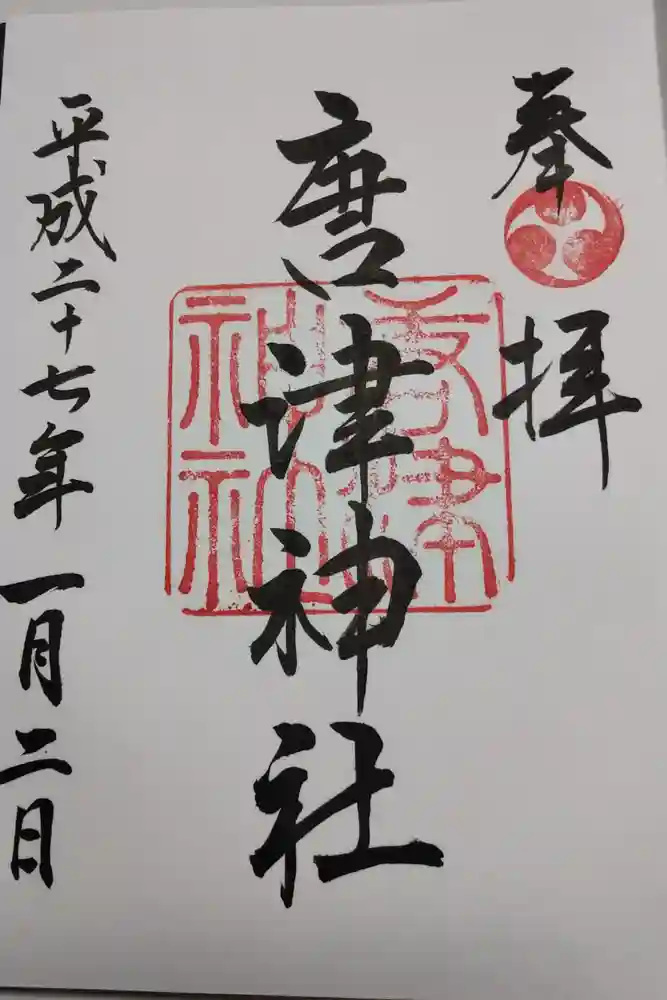 奉拝
唐津神社
唐津
神社
平成二十七年一月二日